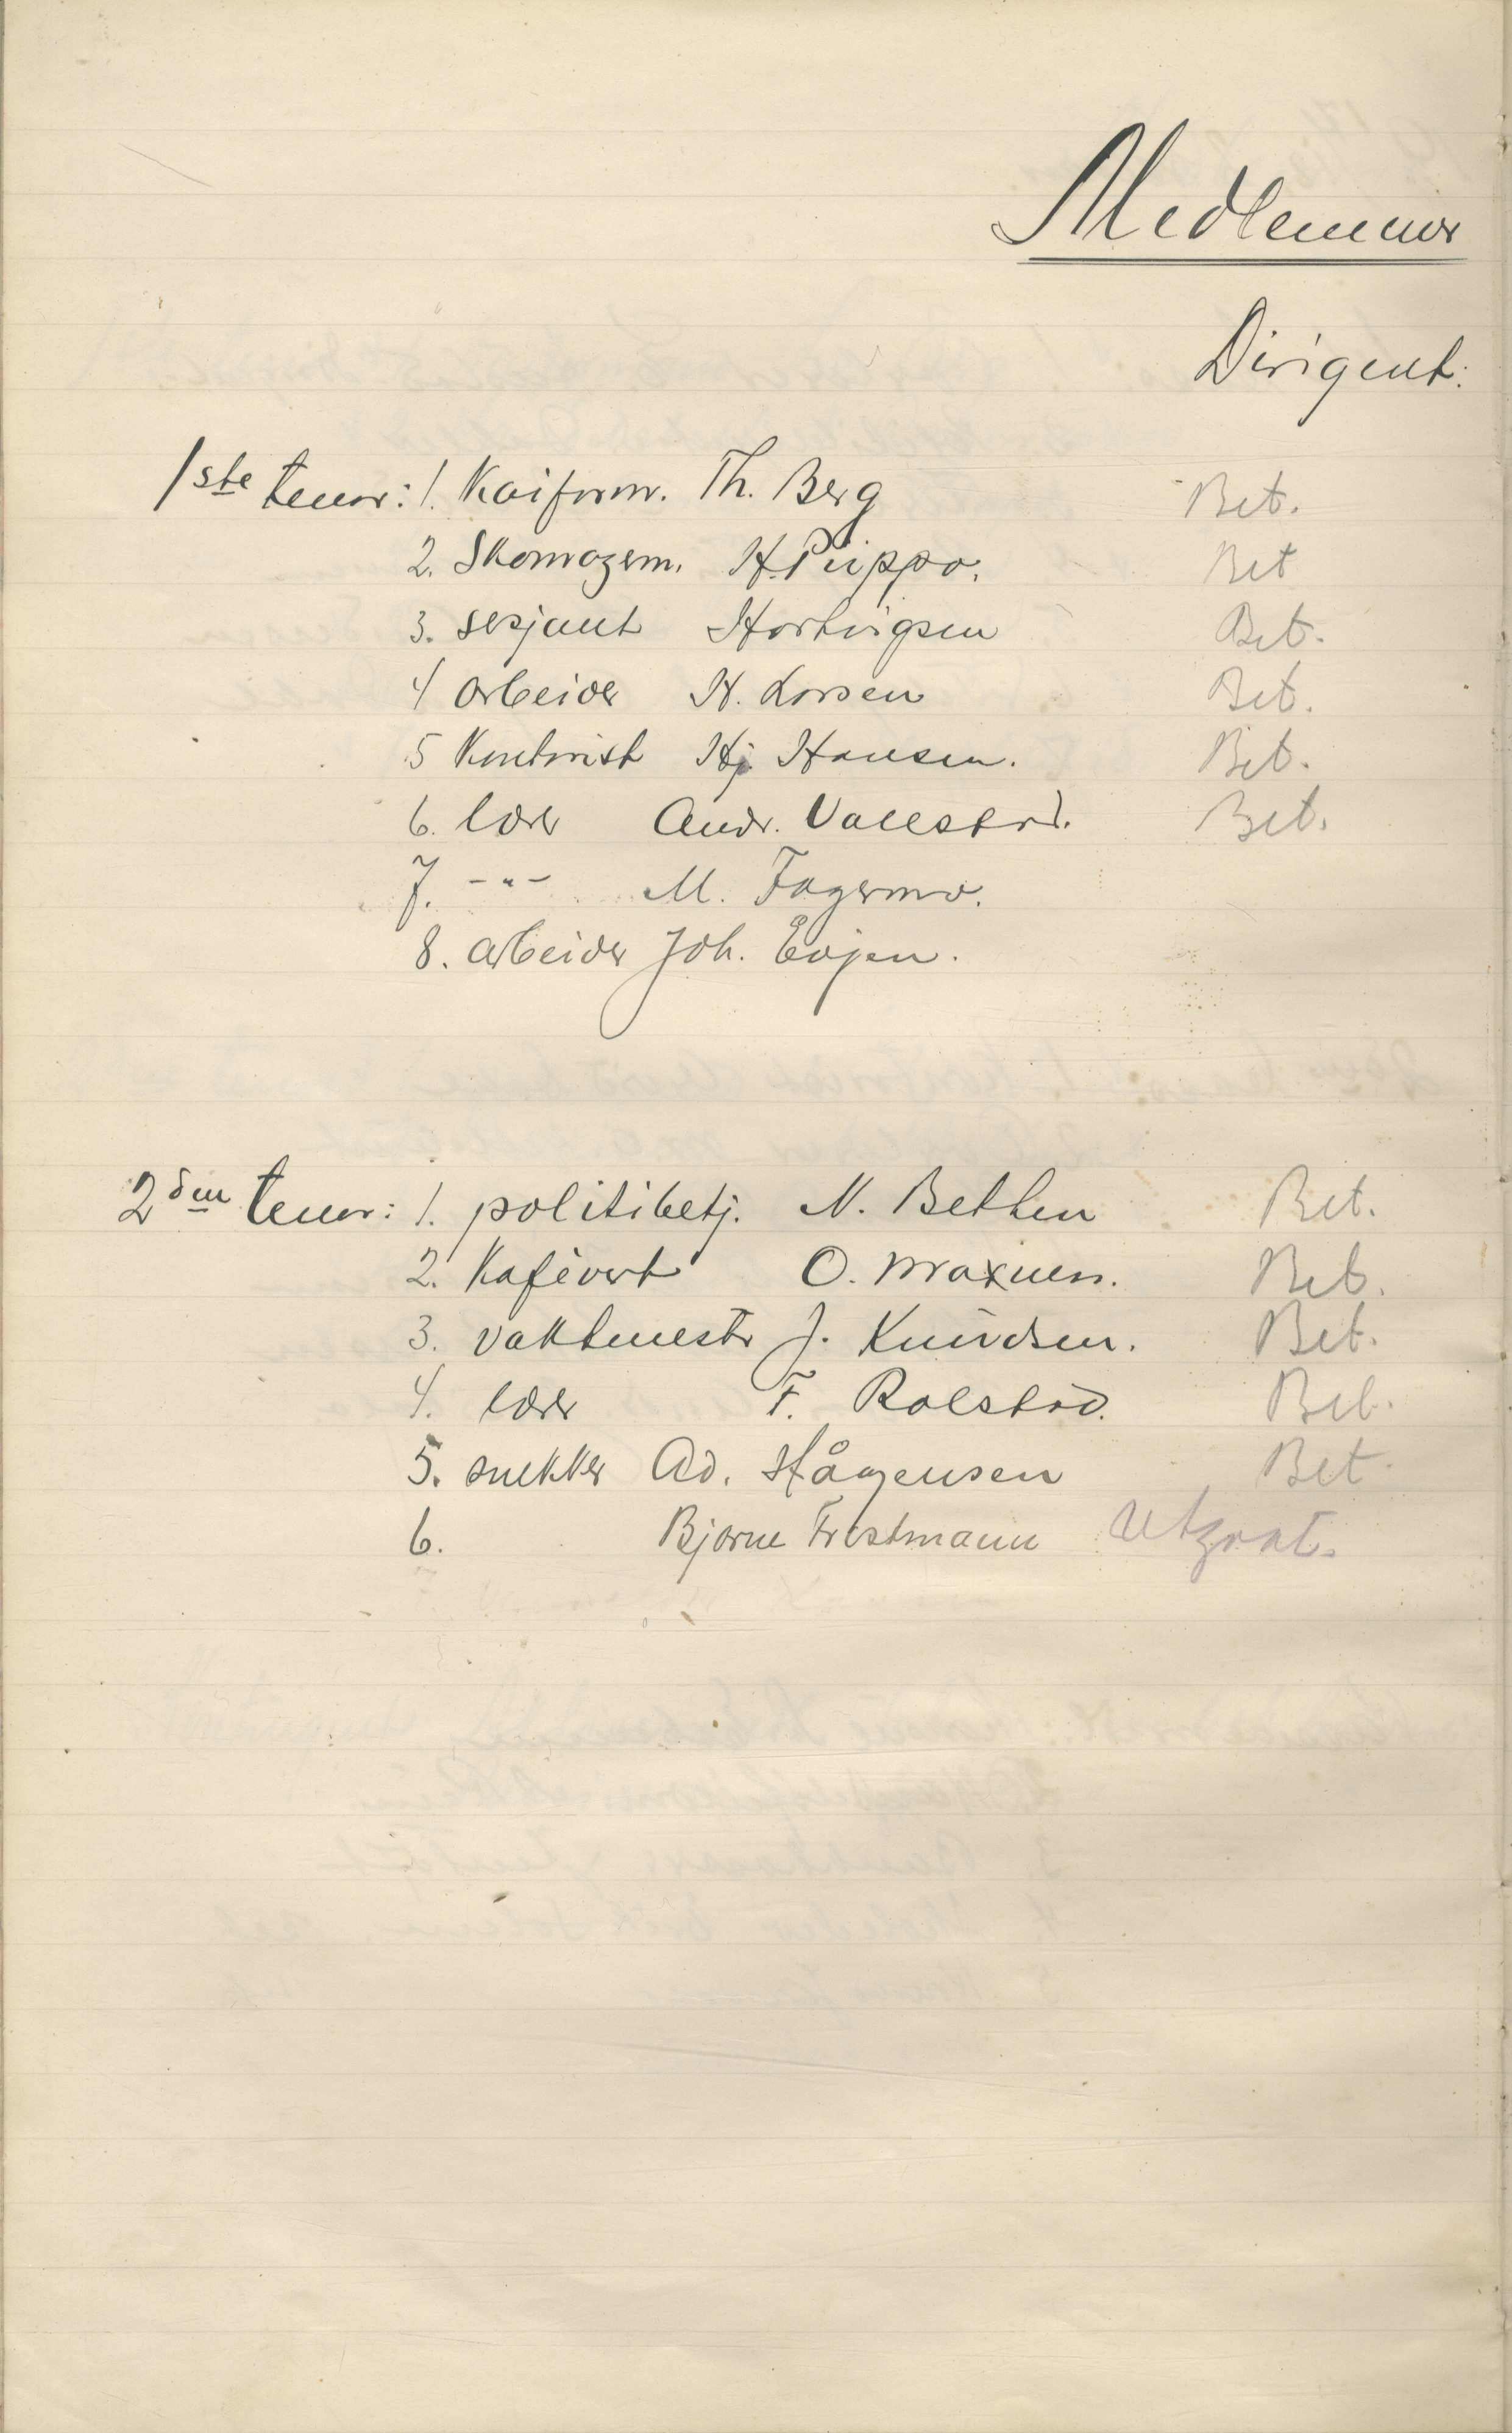 Medlemmer
Dirigent:
1ste tenor: 1. Kaiform. Th. Berg Bet.
2. Skomagerm. H. Piippo. Bet
3. sersjant Hartvigsen Bet.
4 arbeider H. Larsen Bet.
5 Kontorist Hj. Hansen. Bet.
6. lærer Andr. Vallestad. Bet.
7. -"- M. Fagermo.
8. arbeider Joh. Evjen.
2den tenor: 1. politibetj. N. Bethen Bet.
2. Kafévert O. Maxness. Bet.
3. vaktmester J. Knudsen. Bet.
4. lærer F. Rolstad. Bet.
5. snekker Ad. Hågensen Bet
6. Bjarne Frostmann Utgåt.